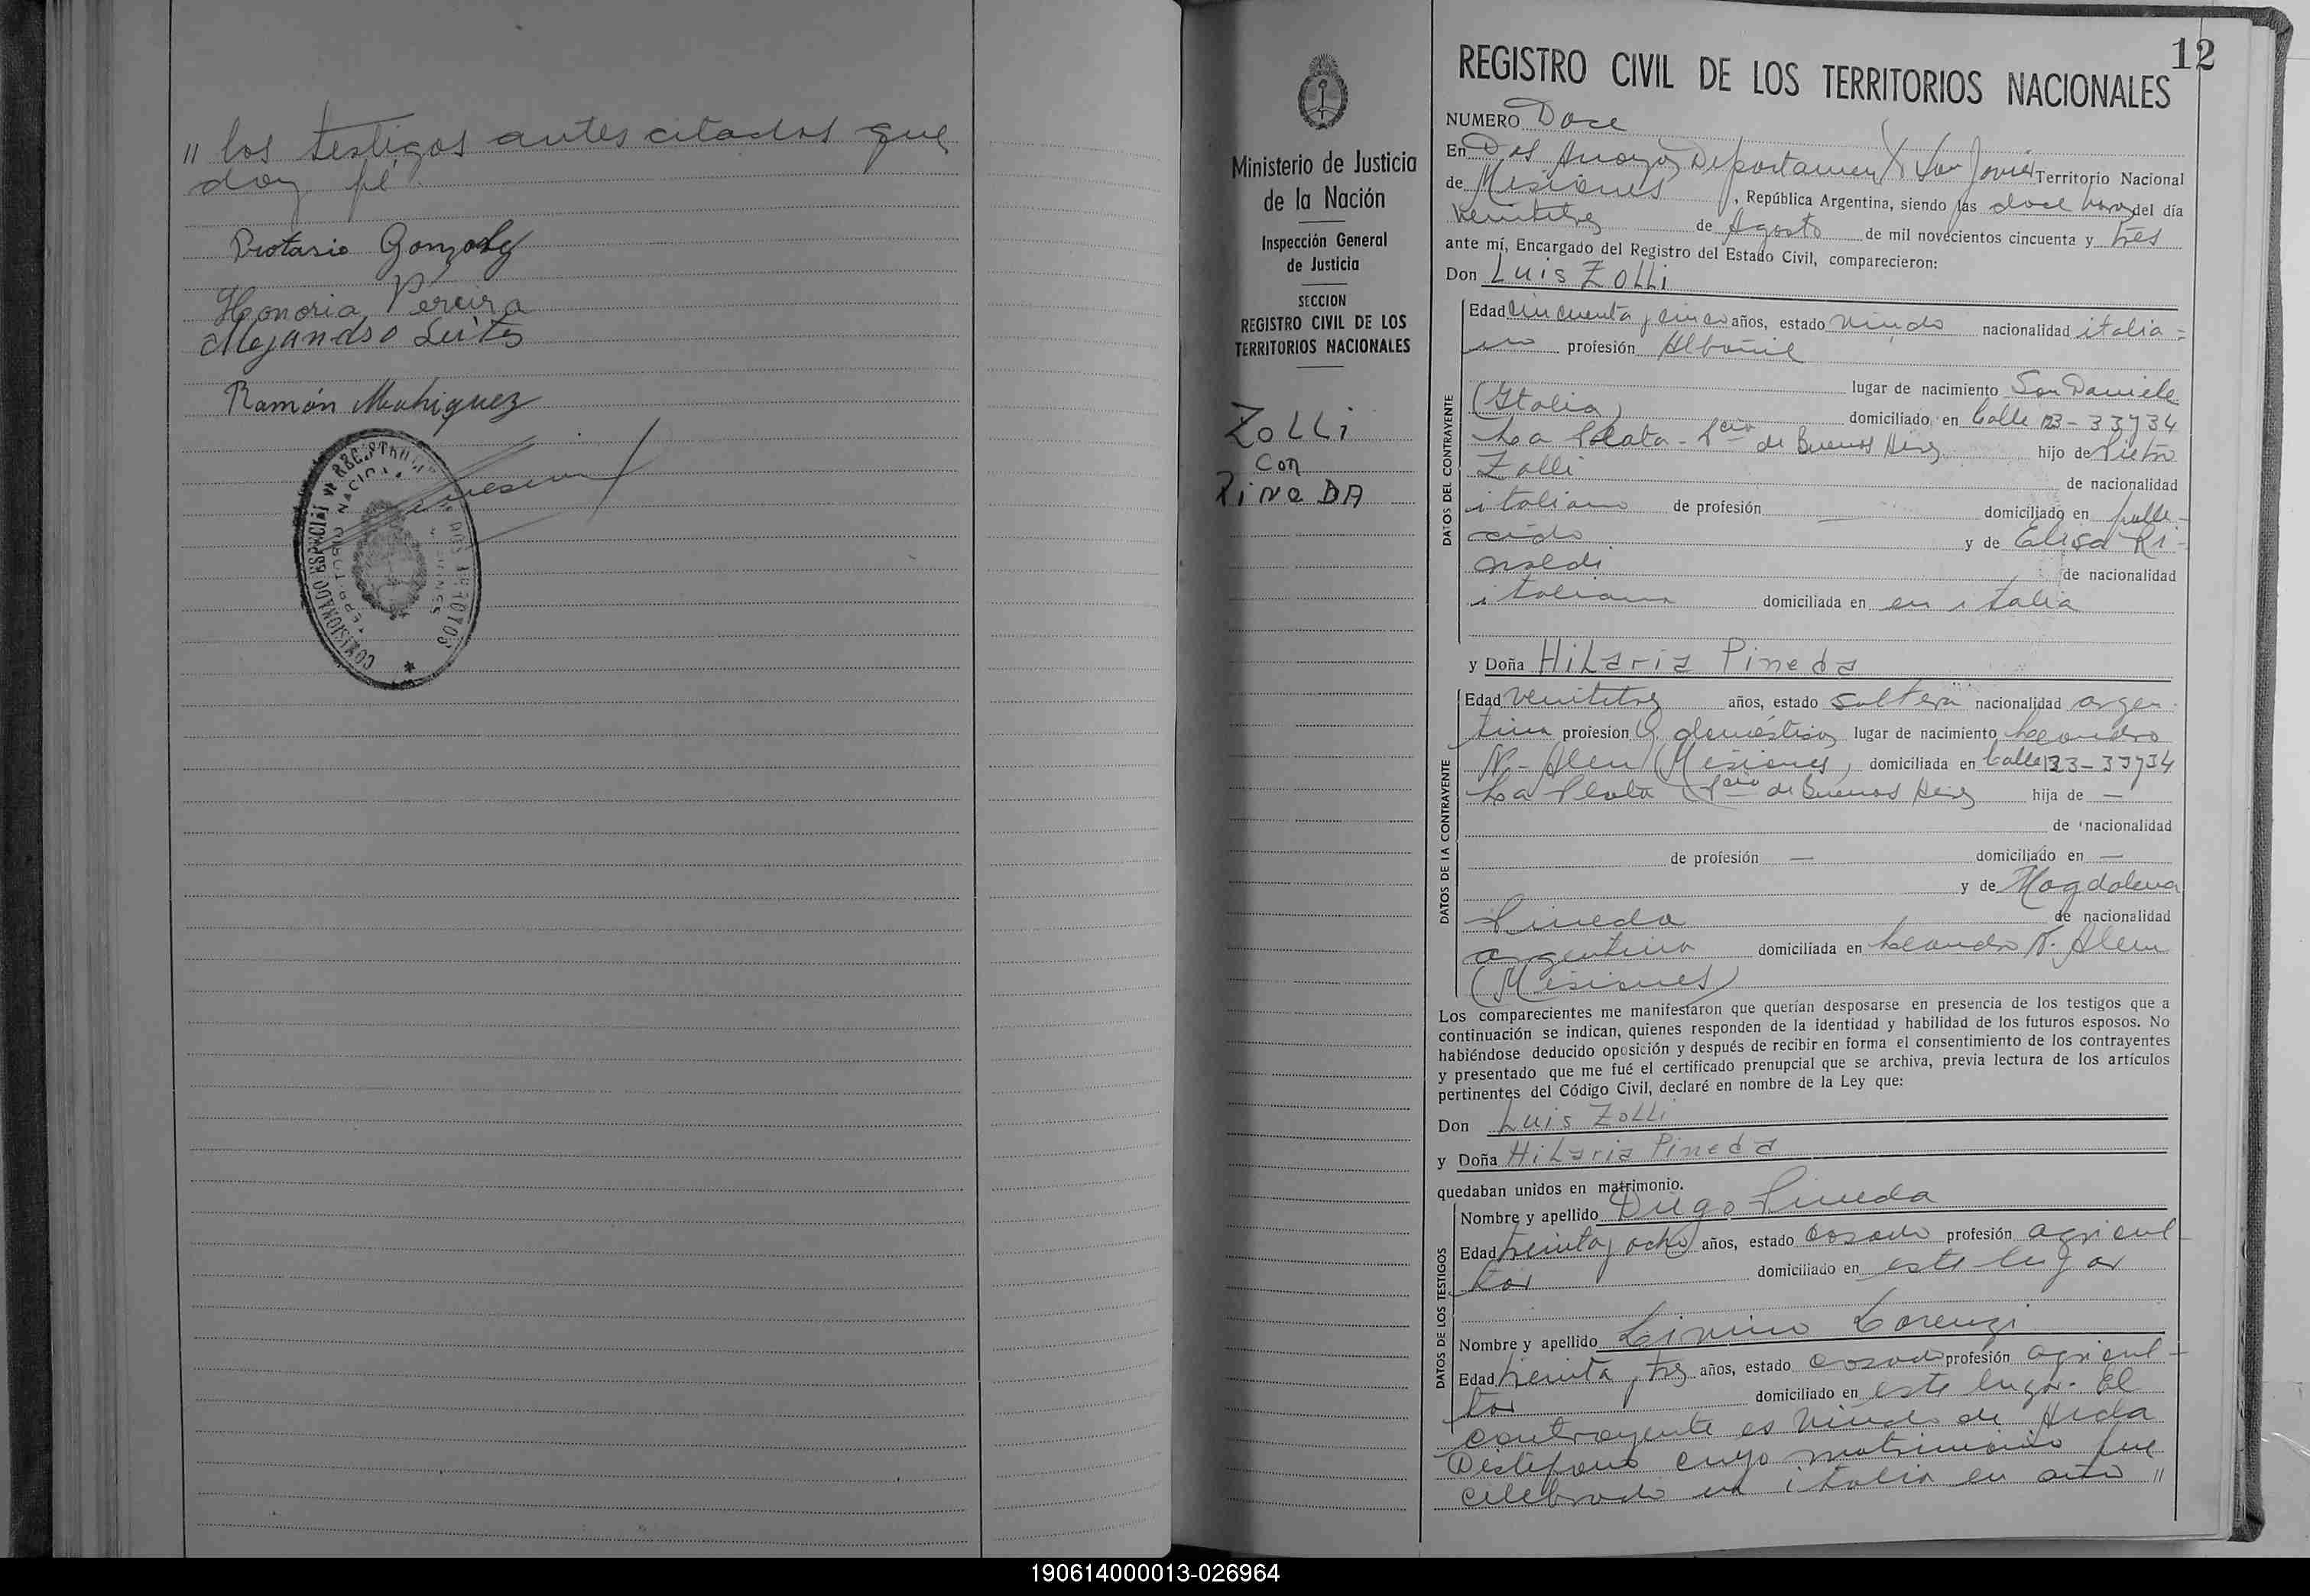 " los testigos antes citados que
doy fé
Protasio Gonzalez
Honoria Pereira
Alejandro
Ramón
COMISIONADO ESPECIAL REGISTRO
TERRITORIO NACIONAL
12
Ministerio de Justicia
de la Nación
Inspección General
de Justicia
SECCION
REGISTRO CIVIL DE LOS
TERRITORIOS NACIONALES
ZOLLi
con
PiNeDA
REGISTRO CIVIL DE LOS TERRITORIOS NACIONALES
NUMERO Doce
En Dos Arroyos Departamento San Javier Territorio Nacional
de Misiones, República Argentina, siendo las doce horas del día
veintitres de Agosto de mil novecientos cincuenta y tres
ante mí, Encargado del Registro del Estado Civil, comparecieron:
Don Luis Zolli
DATOS DEL CONTRAYENTE
Edad cincuenta y cinco años, estado viudo nacionalidad italia=
no profesión Albañil
lugar de nacimiento San Daniele
(Italia) domiciliado en Calle
La Plata - Pcia de Buenos Aires hijo de Pietro
Zolli de nacionalidad
italiano de profesión — domiciliado en falle-
cido y de Elisa Ri-
naldi de nacionalidad
italiana domiciliada en en italia
y Doña Hilaria Pineda
DATOS DE LA CONTRAYENTE
Edad veintitres años, estado soltera nacionalidad argen-
tina profesion Q. domésticos lugar de nacimiento Leandro
N. Alem (Misiones) domiciliada en Calle
La Plata Pcia de Buenos Aires hija de —
de nacionalidad
de profesión — domiciliado en —
y de Magdalena
Pineda de nacionalidad
argentina domiciliada en Leandro N. Alem
(Misiones)
Los comparecientes me manifestaron que querían desposarse en presencia de los testigos que a
continuación se indican, quienes responden de la identidad y habilidad de los futuros esposos. No
habiéndose deducido oposición y después de recibir en forma el consentimiento de los contrayentes
y presentado que me fué el certificado prenupcial que se archiva, previa lectura de los artículos
pertinentes del Código Civil, declaré en nombre de la Ley que:
Don Luis Zolli
y Doña Hilaria Pineda
quedaban unidos en matrimonio.
DATOS DE LOS TESTIGOS
Nombre y apellido Diego Pineda
Edad treinta y ocho años, estado casado profesión agricul-
tor domiciliado en este lugar
Nombre y apellido Lorenzi
Edad treinta y tres años, estado casado profesión agricul-
tor domiciliado en este lugar. El
contrayente es viudo de Aida
cuyo matrimonio fue
celebrado en italia en año "
190614000013-026964